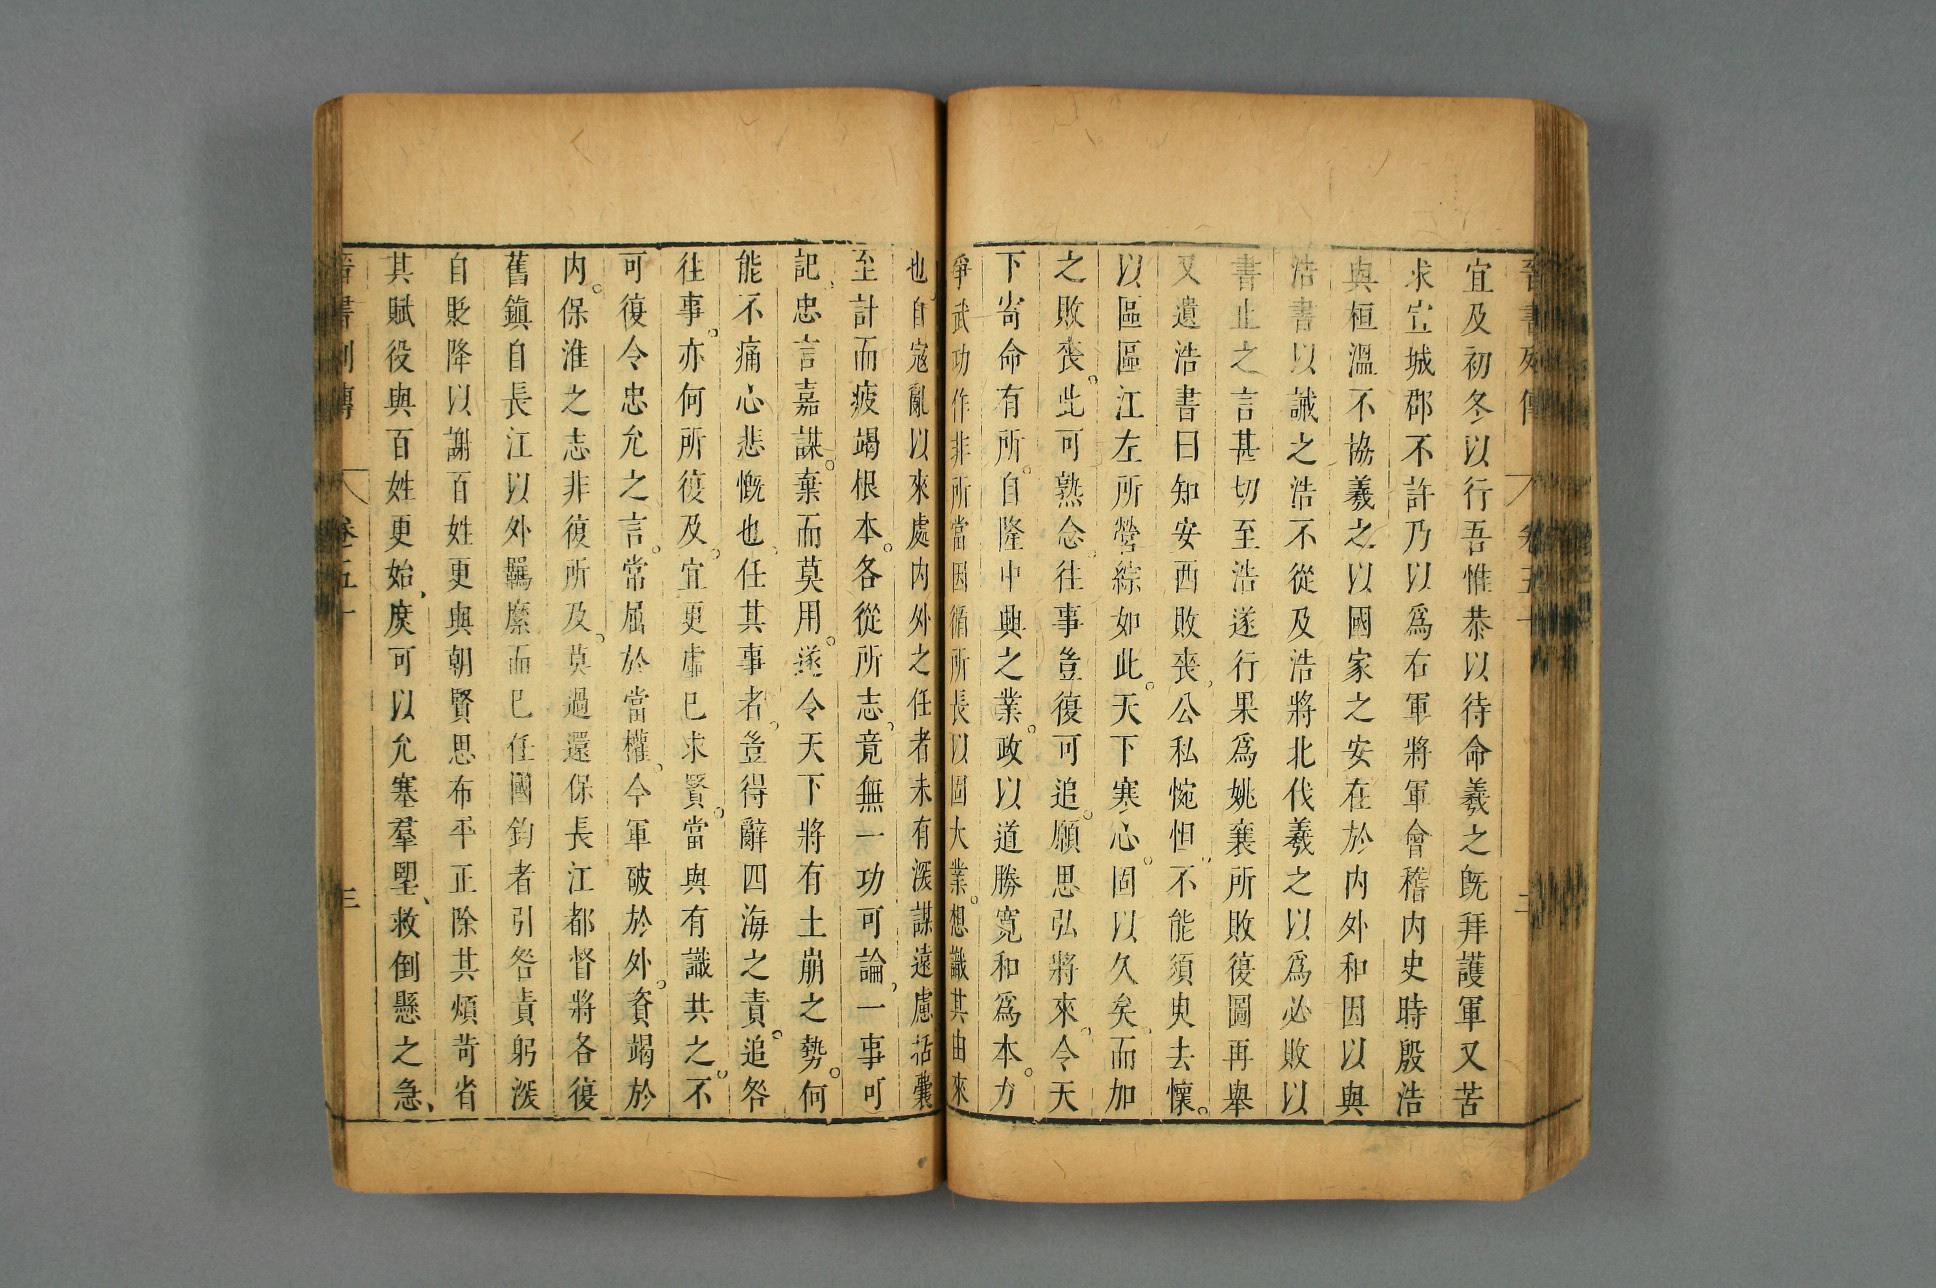 晉書列傳 卷五十 二
宜及初冬以行吾惟恭以待命羲之旣拜護軍又苦
求宣城郡不許乃以爲右軍將軍會稽內史時殷浩
與桓溫不協羲之以國家之安在於內外和因以與
浩書以誡之浩不從及浩將北伐羲之以爲必敗以
書止之言甚切至浩遂行果爲姚襄所敗復圖再舉
又遺浩書曰知安西敗喪公私惋怛不能須臾去懷。
以區區江左所營綜如此。天下寒心。固以久矣。而加
之敗喪。此可熟念。往事豈復可追。願思弘將來。令天
下寄命有所。自隆中興之業。政以道勝寬和爲本。力
爭武功作非所當因循所長以固大業。想識其由來
也。自寇亂以來處內外之任者未有深謀遠慮括囊
至計而疲竭根本。各從所志、竟無一功可論、一事可
記、忠言嘉謀。棄而莫用。遂令天下將有土崩之勢。何
能不痛心悲慨也、任其事者、豈得辭四海之責。追咎
往事。亦何所復及。宜更虛己求賢。當與有識共之。不
可復令忠允之言。常屈於當權、今軍破於外。資竭於
內。保淮之志非復所及。莫過還保長江都督將各復
舊鎮自長江以外羈縻而已任國鈞者引咎責躬深
自貶降以謝百姓更與朝賢思布平正除其煩苛省
其賦役與百姓更始、庶可以允塞羣望、救倒懸之急、
晉書列傳 卷五十 三